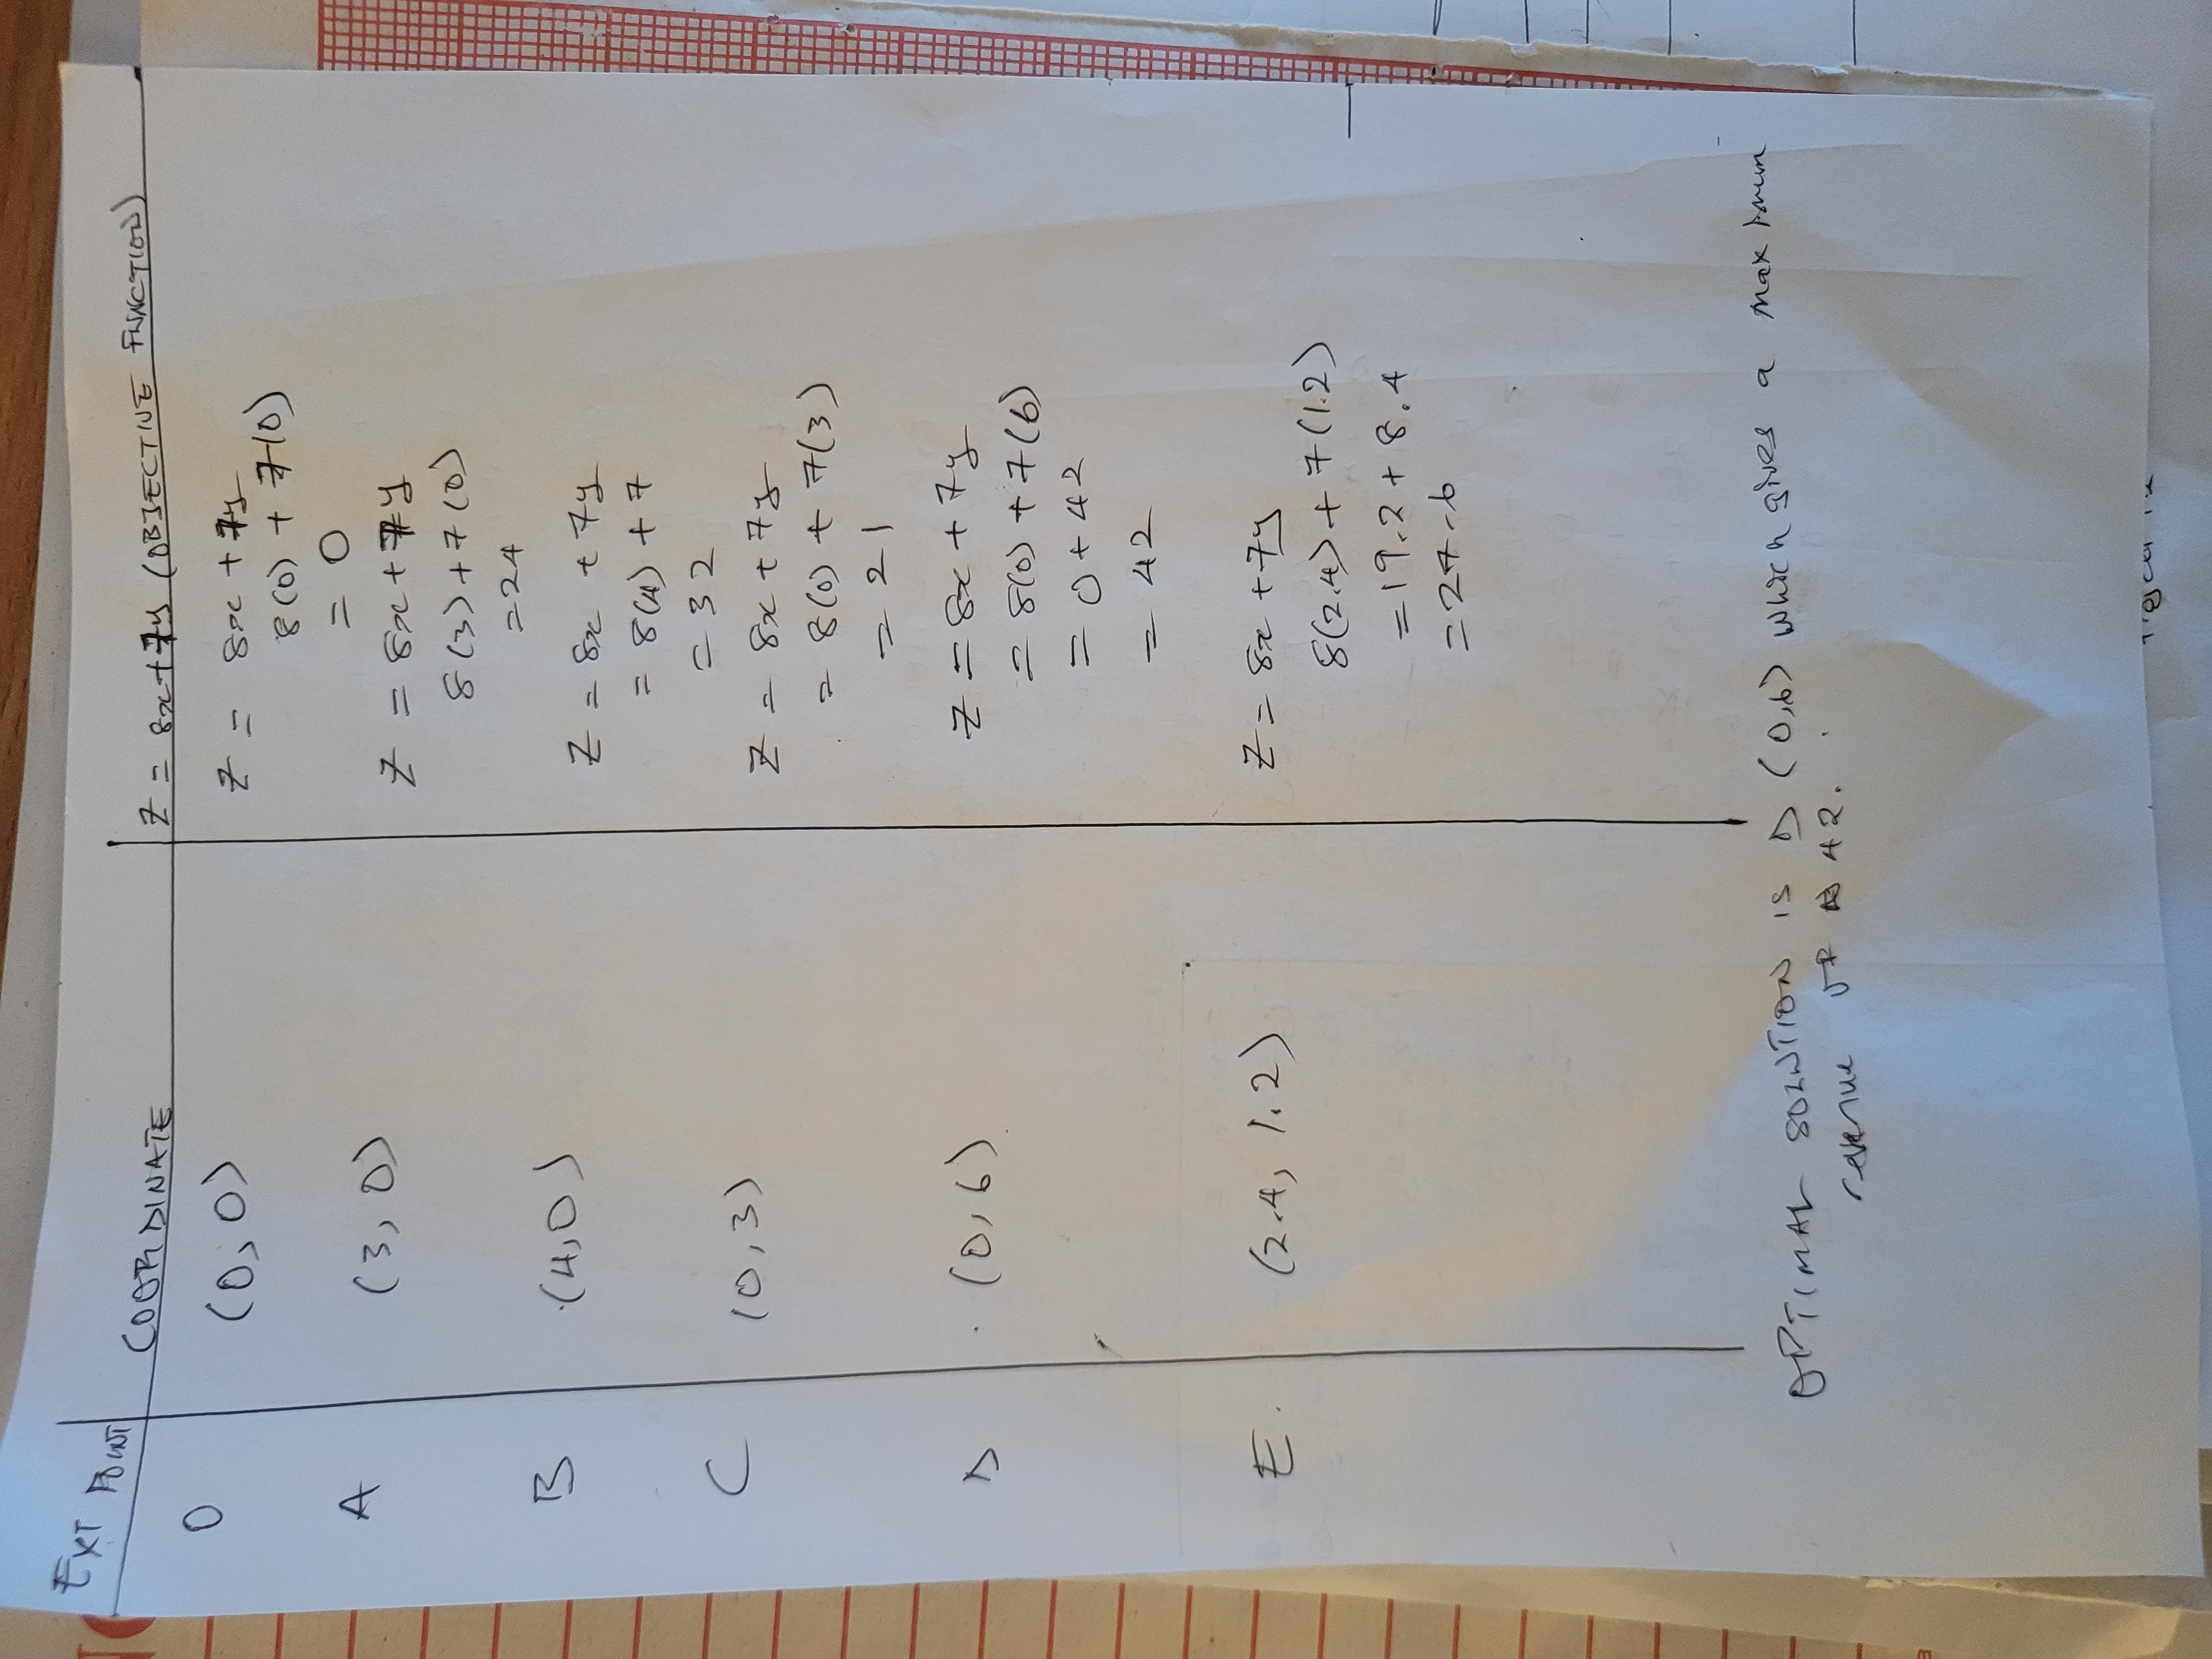 EXT POINT COORDINATE Z = 8x+7y (OBJECTIVE FUNCTION)
O (0,0) Z = 8x + 7y
8(0) + 7(0)
= 0
A (3, 0) Z = 8x + 7y
8(3) + 7(0)
= 24
B (4,0) Z = 8x + 7y
= 8(4) + 7
= 32
C (0,3) Z = 8x + 7y
= 8(0) + 7(3)
= 21
D (0,6) Z = 8x + 7y
= 8(0) + 7(6)
= 0 + 42
= 42
E. (2.4, 1.2) Z = 8x + 7y
8(2.4) + 7(1.2)
= 19.2 + 8.4
= 27.6
OPTIMAL SOLUTION IS D (0,6) which gives a maximum
revenue of 42.